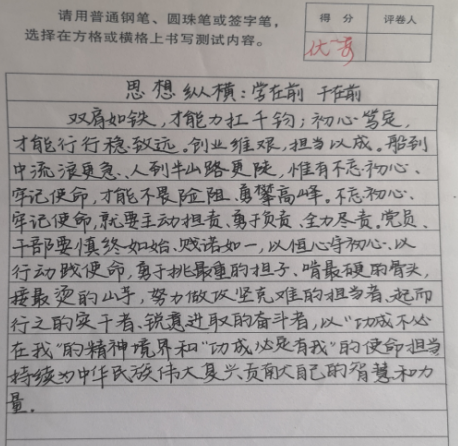 请用普通钢笔、圆珠笔或签字笔,
选择在方格或横格上书写测试内容。
得 分 评卷人
优秀
思想纵横:学在前 干在前
双肩如铁,才能力扛千钧;初心笃定,
才能行行稳致远。创业维艰,担当以成。船到
中流浪更急、人到半山路更陡,惟有不忘初心、
牢记使命,才能不畏险阻、勇攀高峰。不忘初心、
牢记使命,就要主动担责、勇于负责、全力尽责。党员、
干部要慎终如始、践诺如一,以恒心守初心、以
行动践使命,勇于挑最重的担子、啃最硬的骨头,
接最烫的山芋,努力做攻坚克难的担当者、起而
行之的实干者、锐意进取的奋斗者,以“功成不必
在我”的精神境界和“功成必定有我”的使命担当
持续为中华民族伟大复兴贡献大自己的智慧和力
量。